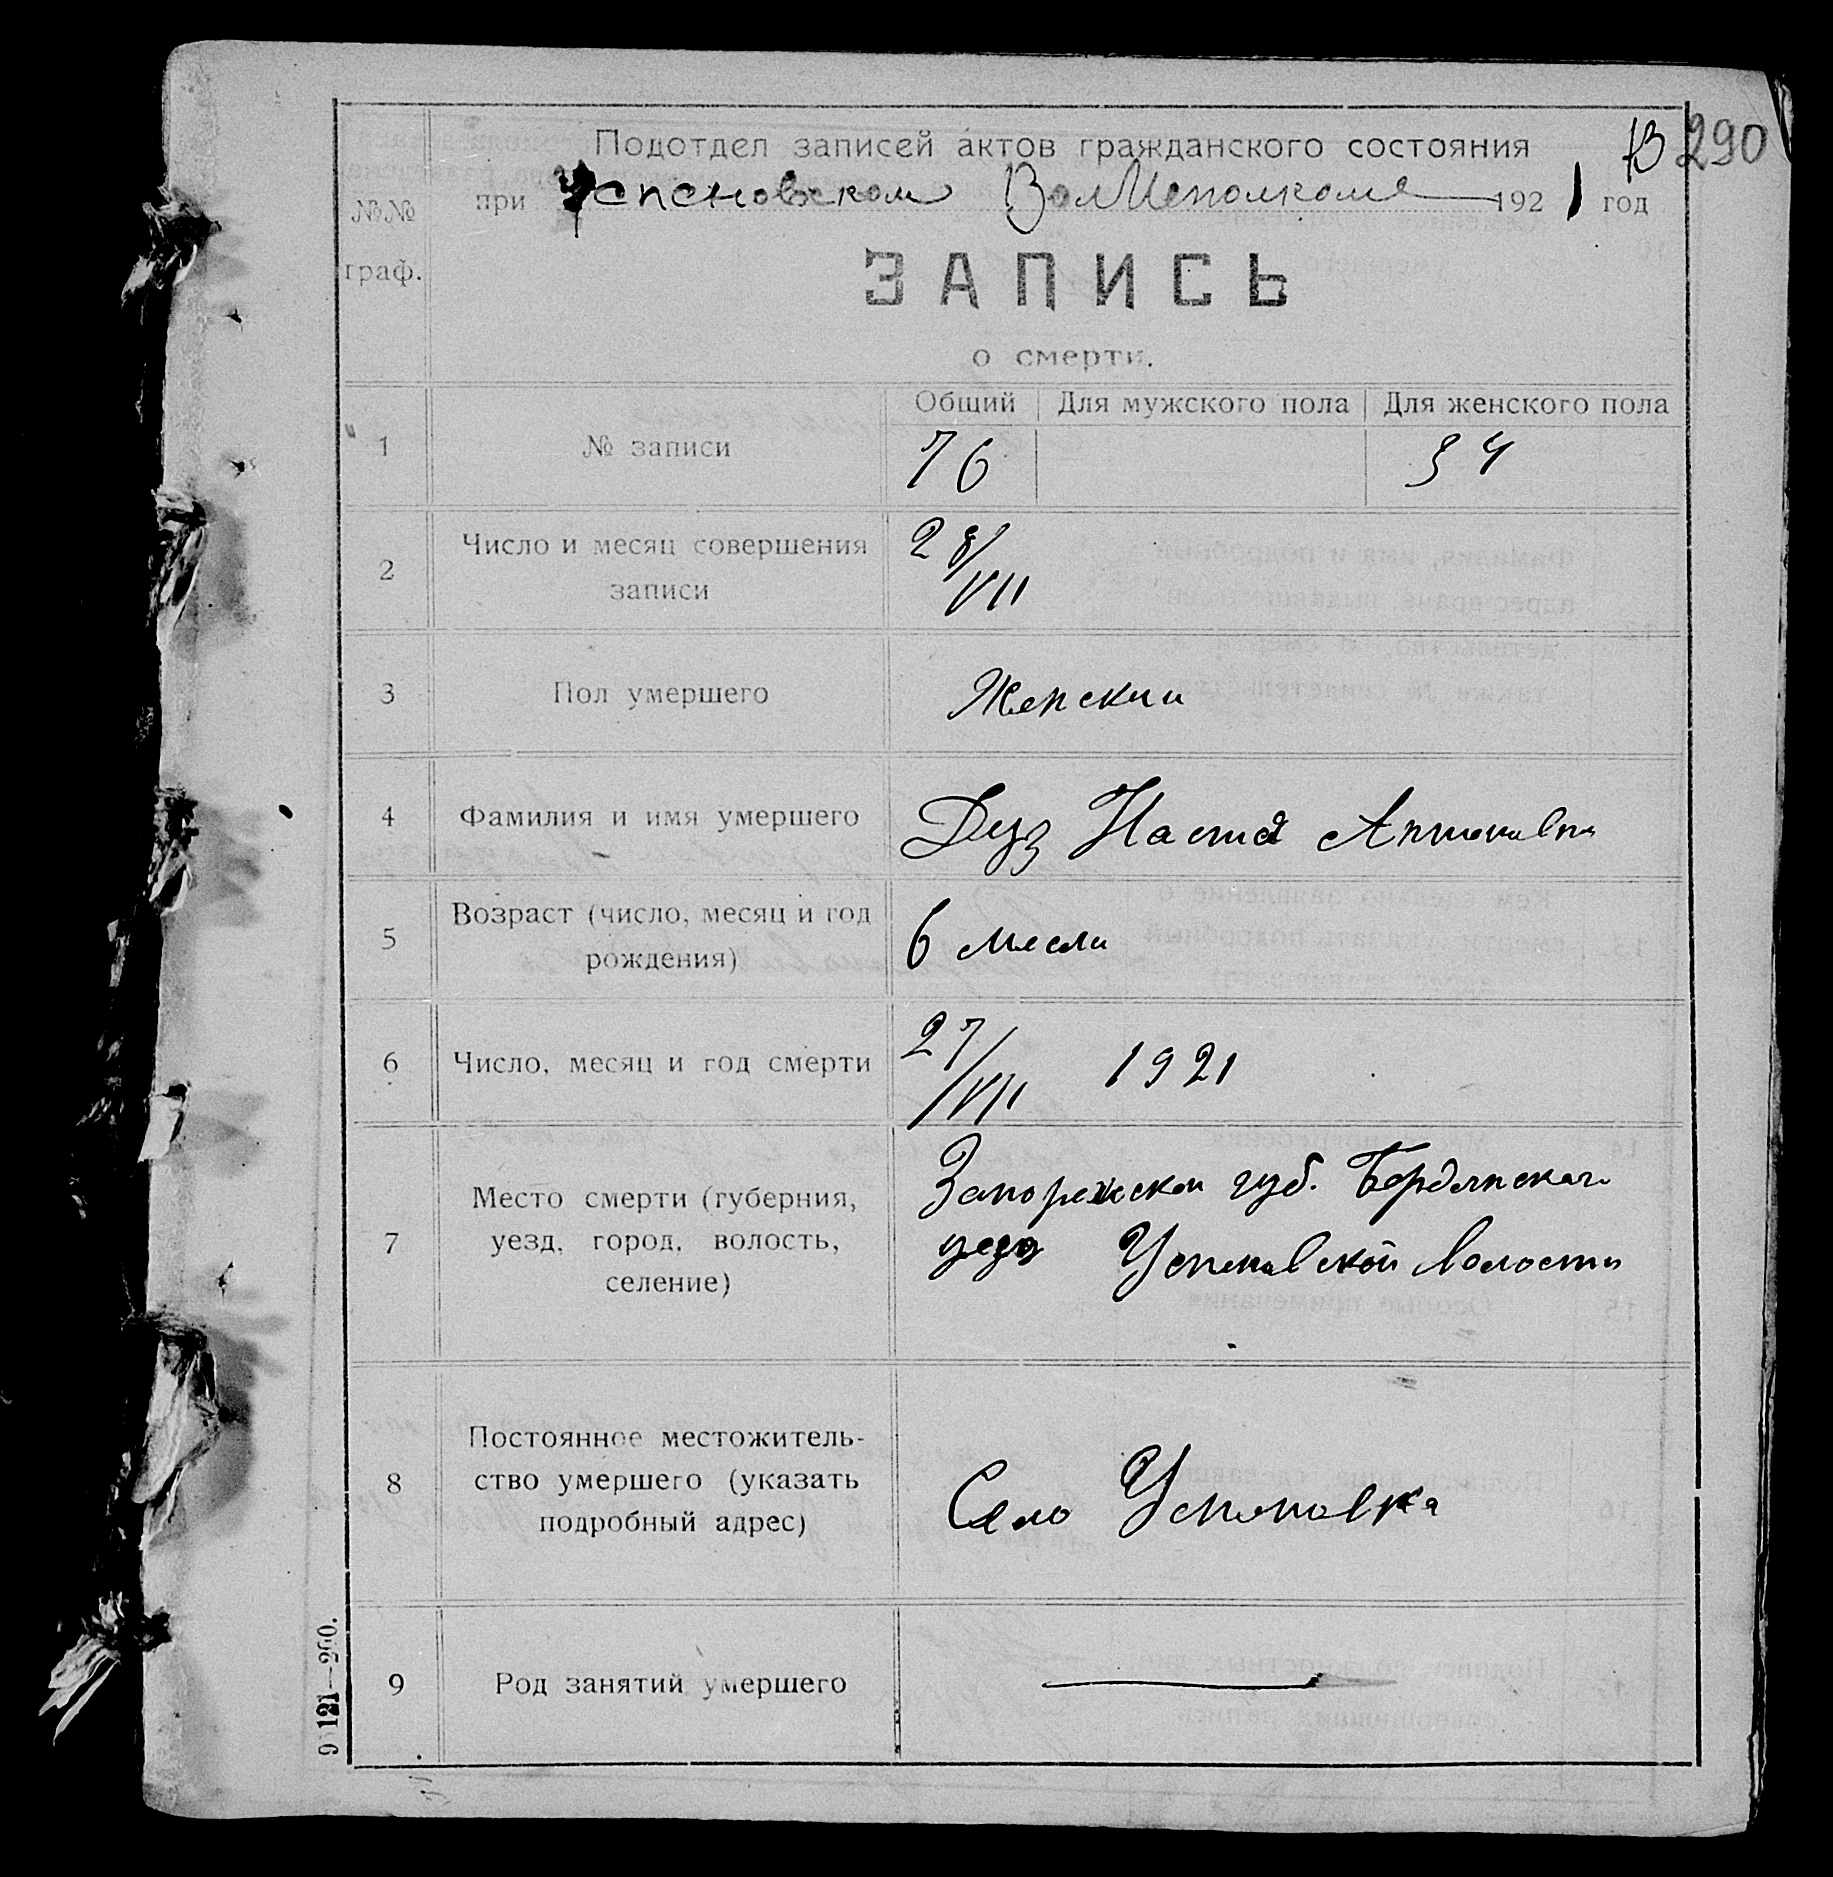 290
Подотдел записей актов гражданского состояния
при Успеновском ВолИсполкоме 1921 год
№№ граф.
ЗАПИСЬ
о смерти.
Общий Для мужского пола Для женского пола
1 № записи 76 34
2 Число и месяц совершения записи 28/VII
3 Пол умершего Женский
4 Фамилия и имя умершего Дуз Настя Антоновна
5 Возраст (число, месяц и год рождения) 6 месяц
6 Число, месяц и год смерти 27/VII 1921
7 Место смерти (губерния, уезд, город, волость, селение) Запорожской губ. Бердянского
уезда Успеновской волости
8 Постоянное местожитель-
ство умершего (указать
подробный адрес) Село Успеновка
9 Род занятий умершего